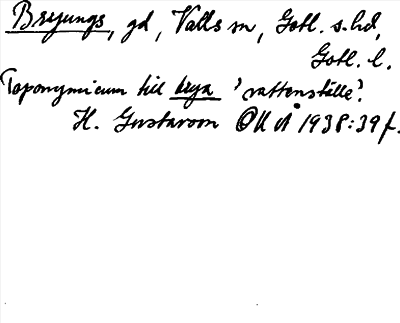 Bryungs, gd, Valls sn, Gotl. s. hd,
Gotl. l.
Toponymicum till brya 'vattenställe'.
H. Gustavson 1938:39f.